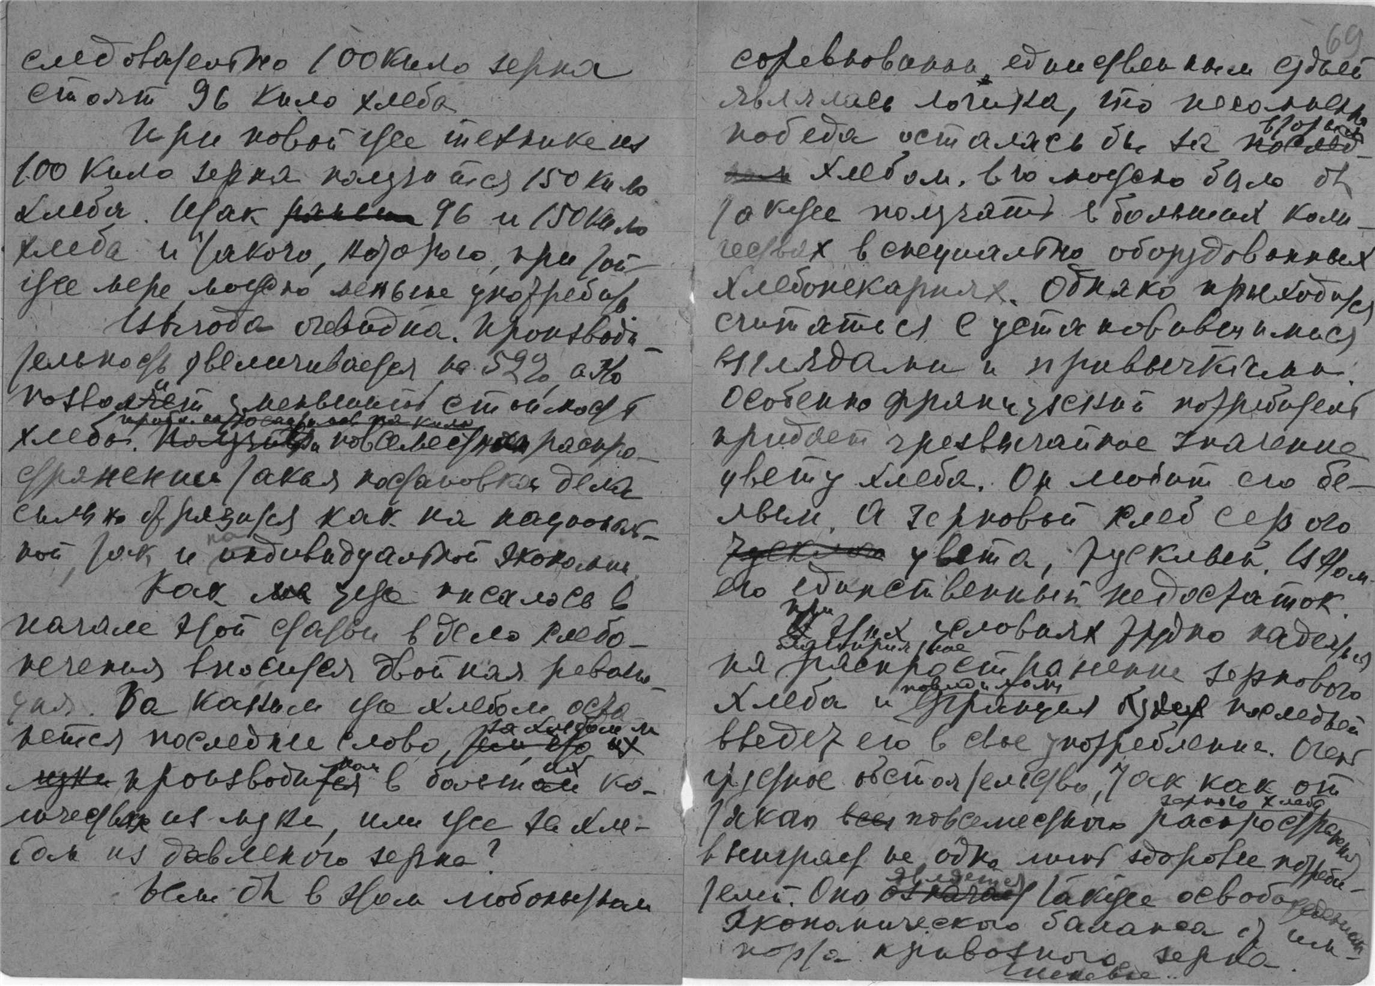 следовательно 100 кило зерна
стоят 96 кило хлеба
При новой же технике из
100 кило зерна получится 150 кило
хлеба. Итак 96 и 150 кило
хлеба и такого, которого, при той
же мере, можно меньше употребить
Выгода очевидна. Производи-
тельность увеличивается на 52%, а это
позволяет уменьшить стоимость
хлеба. При повсеместном распро-
странении такая постановка дела
сильно отразится как на националь-
ной, так и на индивидуальной экономии.
Как уже писалось в
начале этой статьи в дело хлебо-
печения вносится двойная револю-
ция. За каким же хлебом оста
нется последнее слово, за хлебом ли
производимом в больших ко-
личествах из муки, или же за хле-
бом из давленого зерна?
Если бы в этом любопытном
69
соревновании единственным судьей
являлась логика, то несомненно
победа осталась бы за вторым
хлебом. Его можно было бы
также получать в больших коли-
чествах в специально оборудованных
хлебопекарнях. Однако приходится
считаться с установившимися
взглядами и привычками.
Особенно французский потребитель
придает чрезвычайное значение
цвету хлеба. Он любит его бе-
лым. А зерновый хлеб серого
цвета, тусклый. В этом
его единственный недостаток.
При этих условиях трудно надеяться
на распространение зернового
хлеба и Франция последней
введет его в свое употребление. Очень
грустное обстоятельство, так как от
такого повсеместного распространения
зерного хлеба
выиграет не одно лишь здоровье потреби-
телей. Оно является также освобождением
экономического баланса от им-
порта привозного зерна.